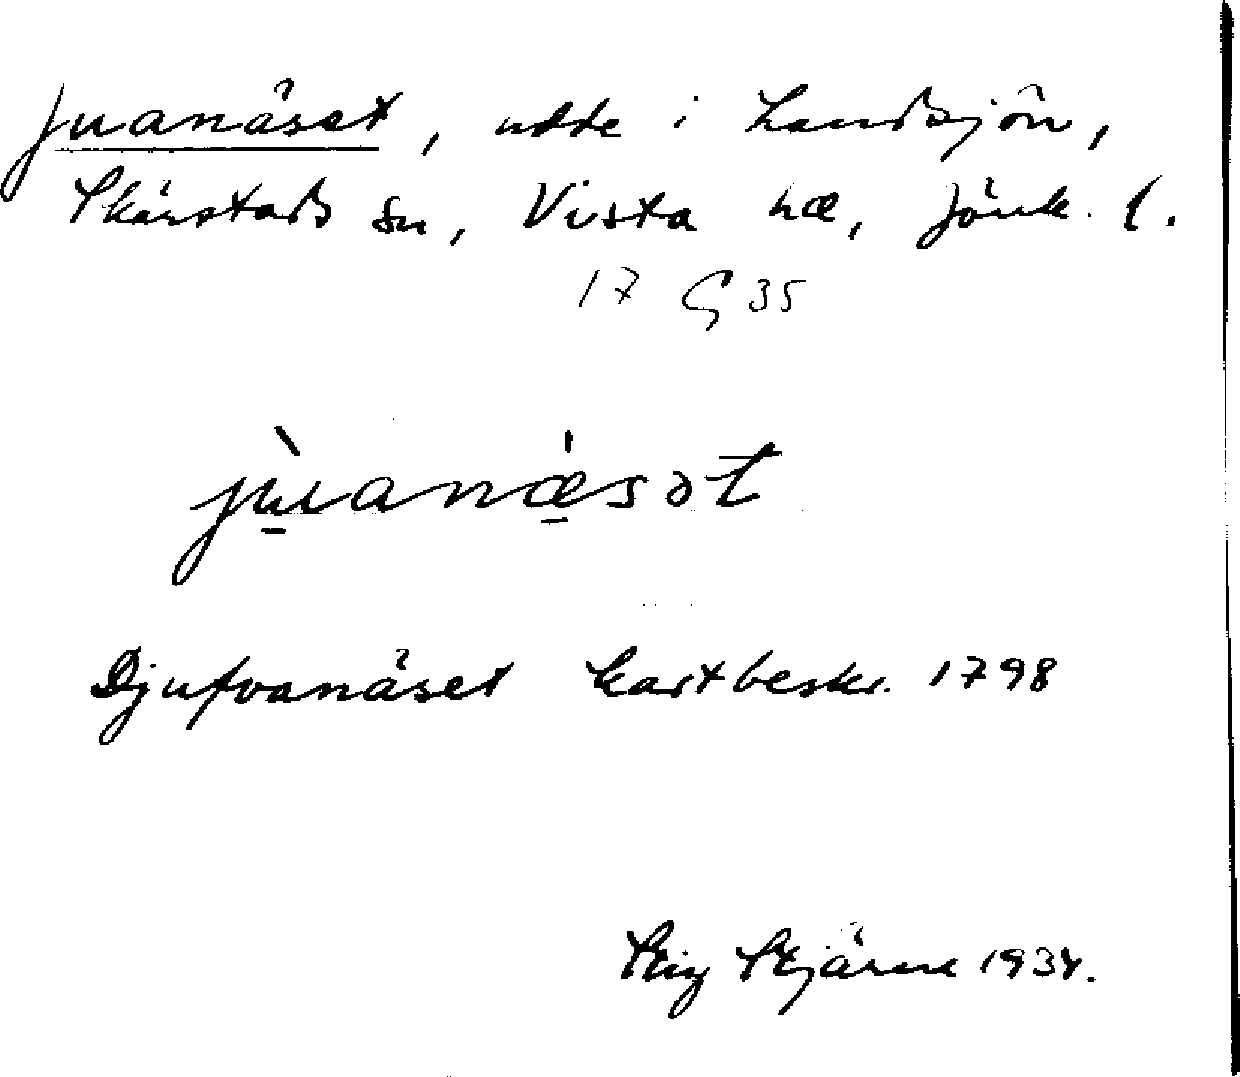 Juanäset, udde i Landsjön,
Skärstads sn, Vista hd, Jönk. l.
17 G 35
jùanæ̀sət
Djufvanäset kartbeskr. 1798
Stig Stjärne 1934.